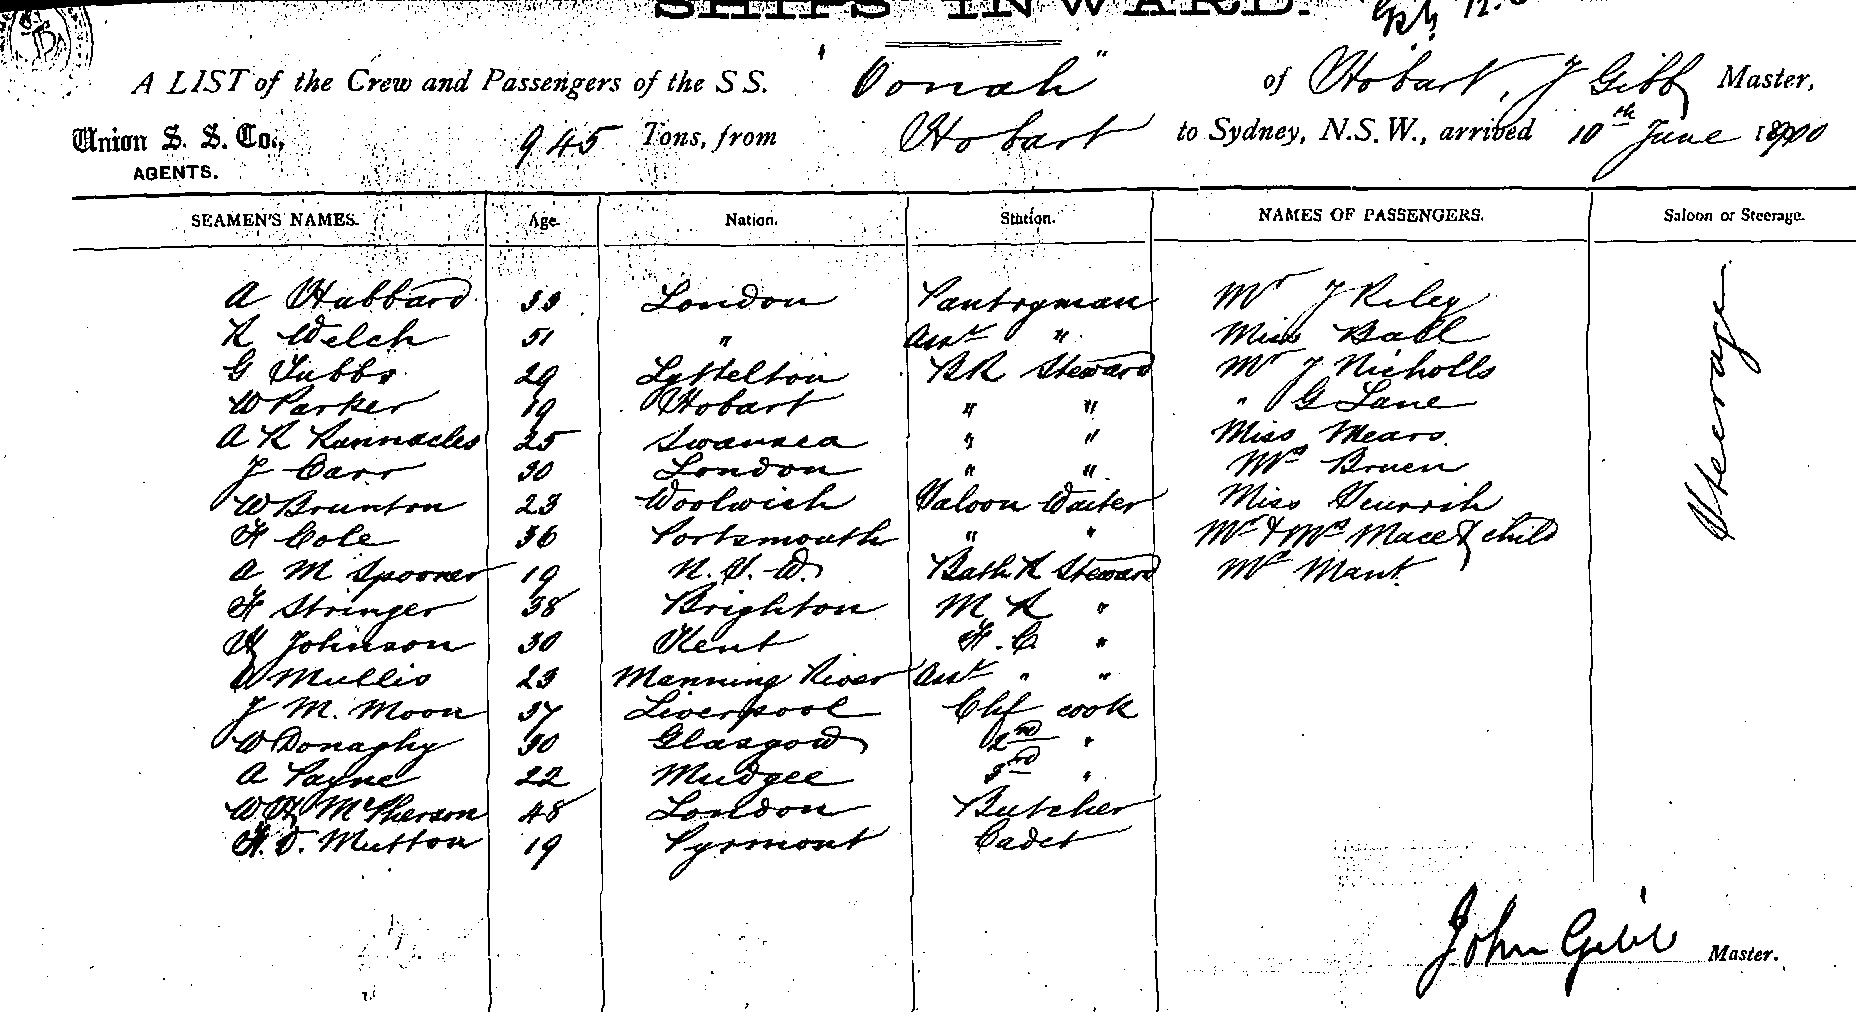 SHIPS INWARD.
A LIST of the Crew and Passengers of the S S. "Oonah" of Hobart, J Gibb Master,
Union S. S. Co., 945 Tons, from Hobart to Sydney, N.S.W., arrived 10th June 1900
AGENTS.
SEAMEN'S NAMES. Age. Nation. Station. NAMES OF PASSENGERS. Saloon or Steerage.
A Hubbard 33 London Pantryman Mr J Riley Steerage
R Welch 51 " Asst " Miss Ball
G Tubbs 29 Lyttelton BR Steward Mr J Nicholls
W Parker 19 Hobart " " " G Lane
A R Runnacles 25 Swansea " " Miss Mears
J Carr 30 London " " Mrs Bruen
W Brunton 23 Woolwich Saloon Waiter Miss
H Cole 36 Portsmouth " " Mr & Mrs Mace & child
A M Spooner 19 N. S. W. Bath R Steward Mr Mant
H Stringer 38 Brighton M R "
H Johnson 30 Kent F. C. "
W Mullis 23 Manning River Asst " "
J M. Moon 37 Liverpool Chf cook
W Donaghy 30 Glasgow 2nd "
A Payne 22 Mudgee 3rd "
W H McPherson 48 London Butcher
H. D. Mutton 19 Pyrmont Cadet
John Gibb Master.